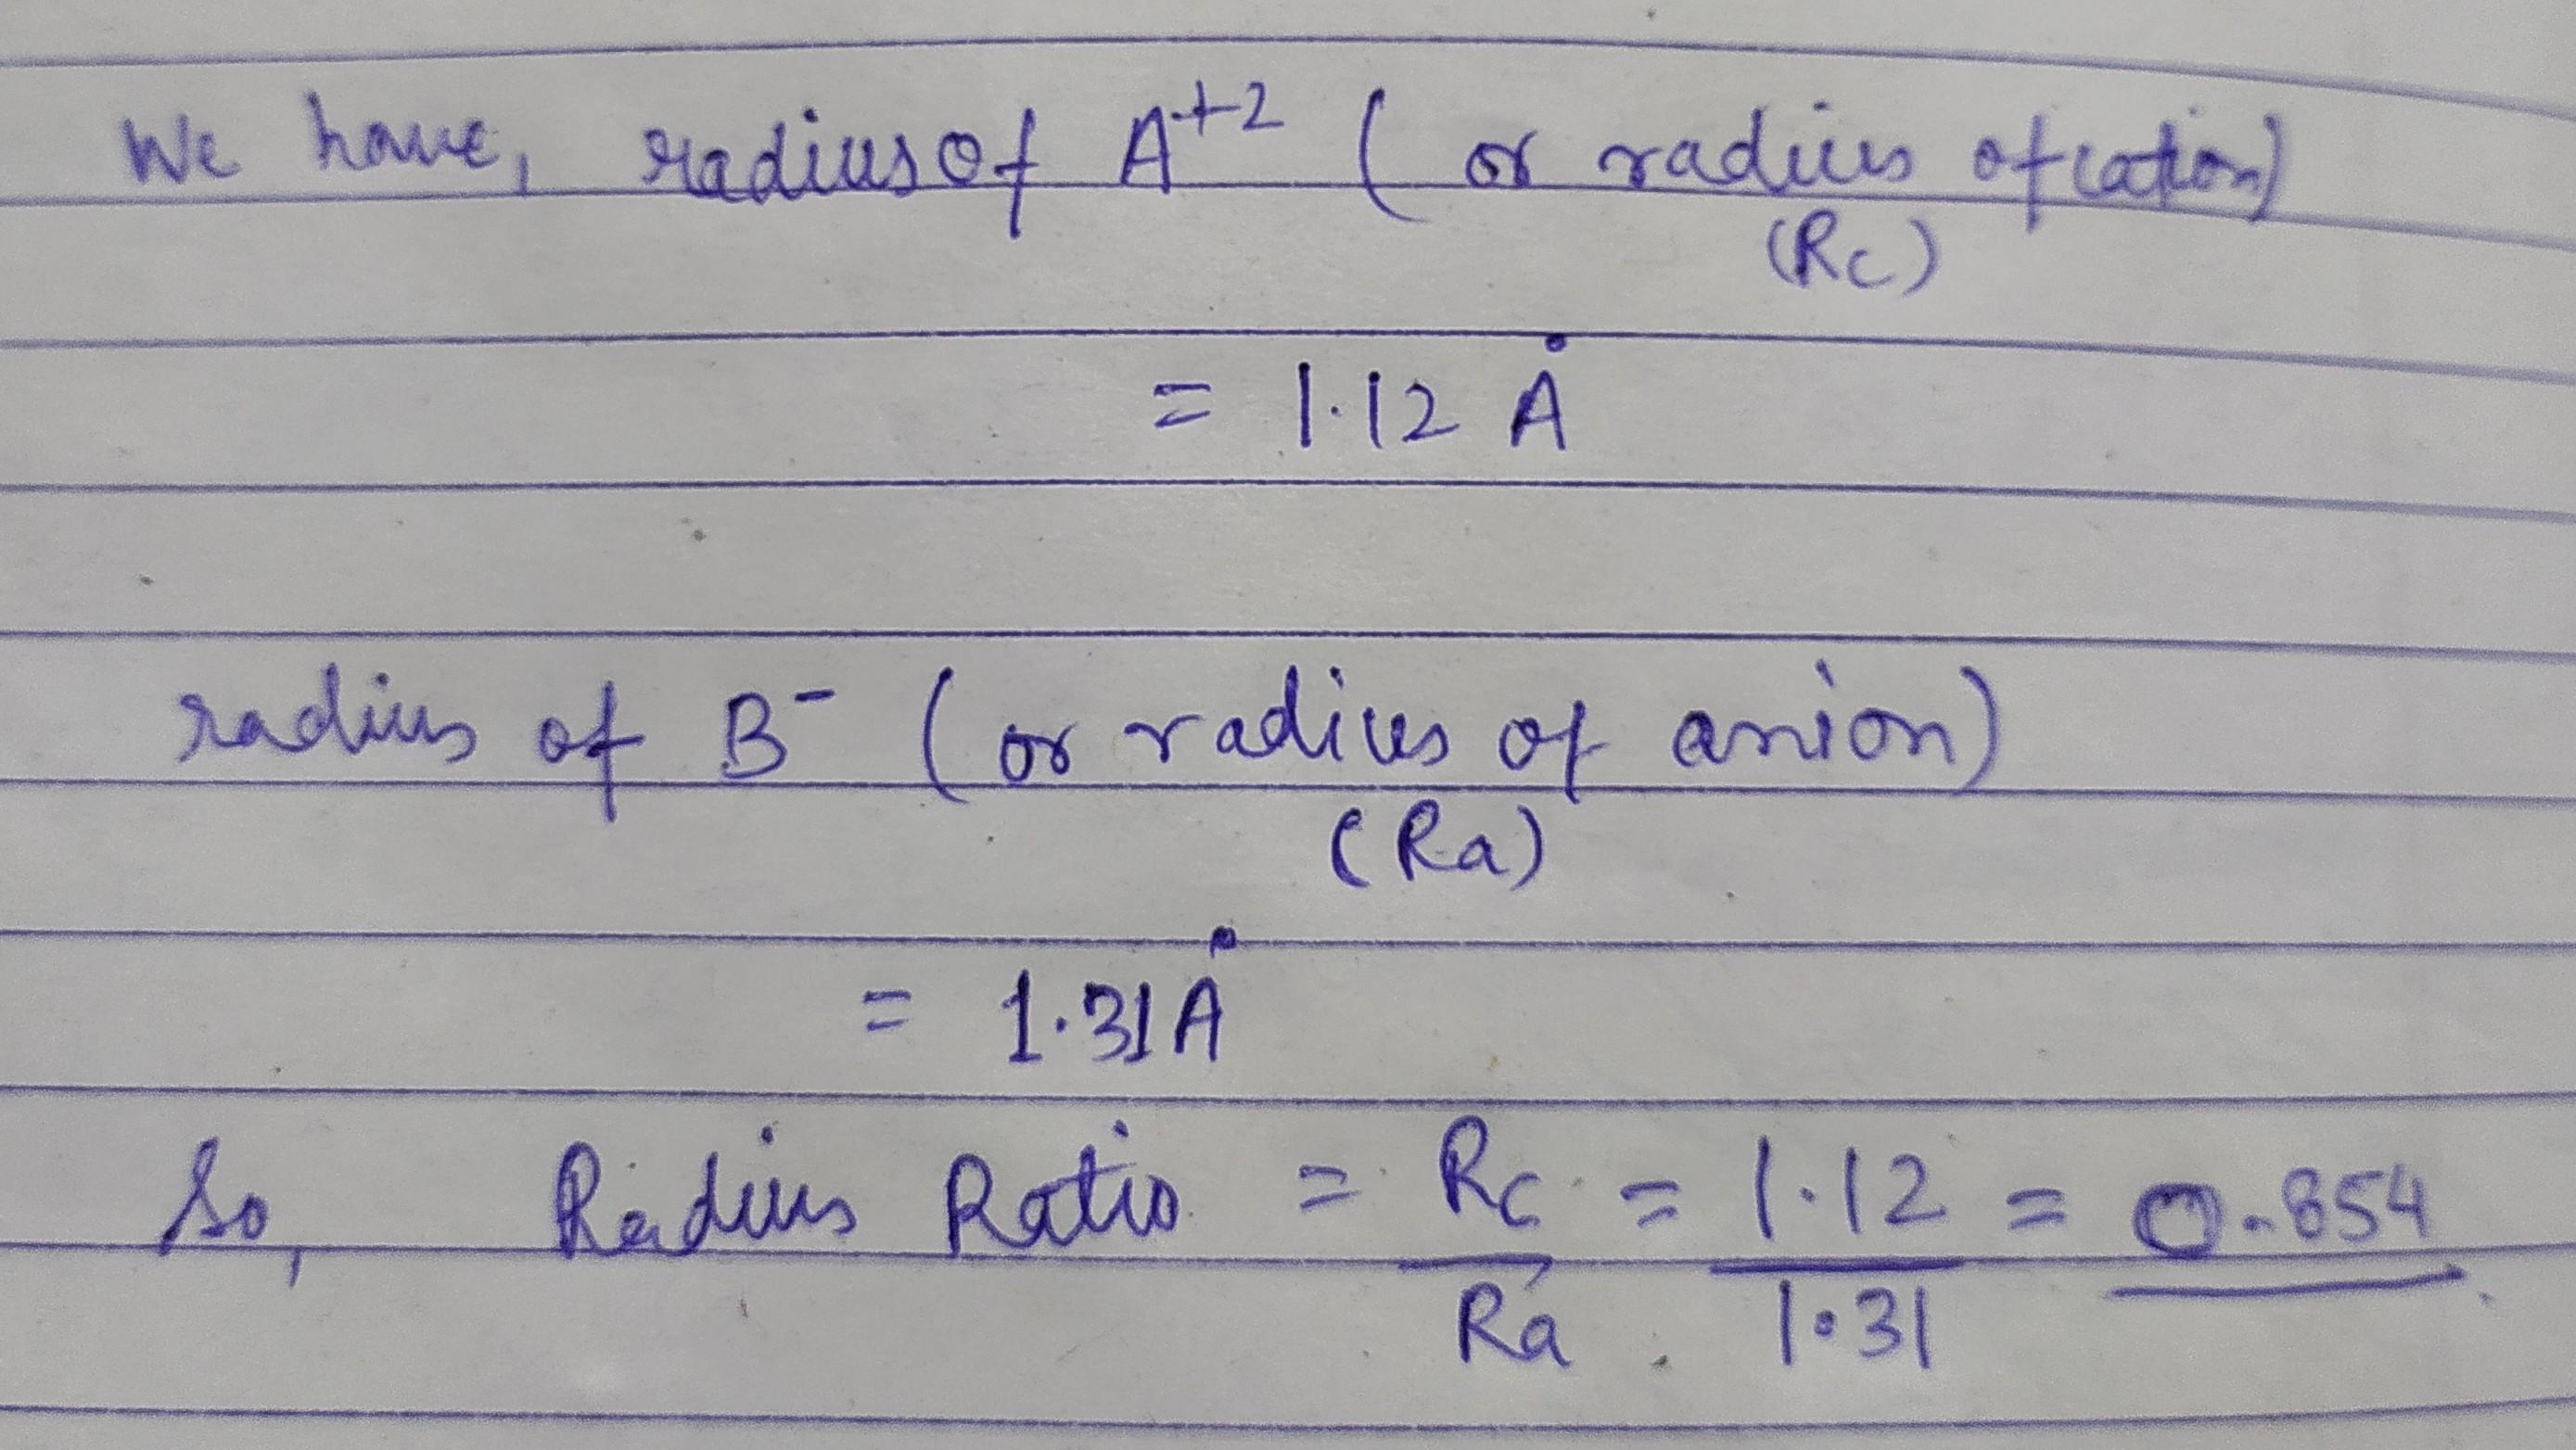 We have, radius of A⁺² ( or radius of cation)
(Rc)
= 1.12 Å
radius of B⁻ ( or radius of anion)
(Ra)
= 1.31Å
So, Radius Ratio = Rc = 1.12 = 0.854
Ra 1.31